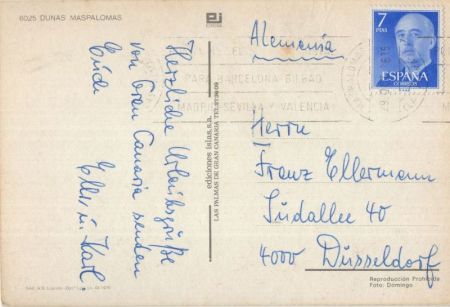 6025 DUNAS MASPALOMAS
Herzliche Urlaubsgrüße
von Gran Canaria senden
Euch
Ellen u. Karl.
ediciones islas,s.a.
LAS PALMAS DE GRAN CANARIA
Alemania
7
PTAS
ESPAÑA
CORREOS
PARA BARCELONA BILBAO
MADRID SEVILLA Y VALENCIA
Herrn
Franz Ellermann
Südallee 40
4000 Düsseldorf
Reproducción Prohibida
Foto: Domingo